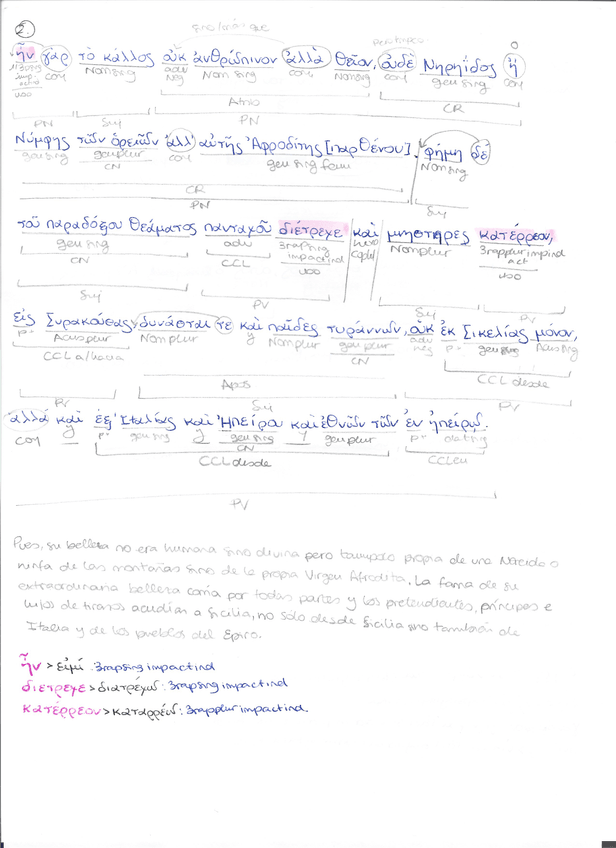 2.
sino/más que
pero tampoco
ἦν γὰρ τὸ κάλλος οὐκ ἀνθρώπινον ἀλλὰ θεῖον, οὐδὲ Νηρηΐδος ἢ
conj Nom sing adv Neg Nom sing conj Nom sing conj gen sing conj
Atrib CR
PN Suj PN
Νύμφης τῶν ὀρειῶν ἀλλ' αὐτῆς Ἀφροδίτης [παρθένου]. φήμη δὲ
gen sing gen plur conj gen sing fem Nom sing
CN
CR
PN Suj
τοῦ παραδόξου θεάματος πανταχοῦ διέτρεχε καὶ μνηστῆρες κατέρρεον,
gen sing adv 3ra p sing nexo Nom plur 3ra p plur imp ind
CN CCL imp act ind copul act
voo voo
Suj PV Suj PV
εἰς Συρακούσας, δυνάσται τε καὶ παῖδες τυράννων, οὐκ ἐκ Σικελίας μόνον,
p. Acus plur Nom plur y Nom plur gen plur adv neg p. gen sing Acus sing
CCL a/hacia CN CCL desde
PV Apos PV
Suj
ἀλλὰ καὶ ἐξ Ἰταλίας καὶ Ἠπείρου καὶ ἐθνῶν τῶν ἐν ἠπείρῳ.
conj y p. gen sing y gen sing y gen plur p. dat sing
CN
CCL desde CCL en
PV
Pues, su belleza no era humana sino divina pero tampoco propia de una Nereida o
ninfa de las montañas sino de la propia Virgen Afrodita. La fama de su
extraordinaria belleza corría por todas partes y los pretendientes, príncipes e
hijos de tiranos acudían a Sicilia, no sólo desde Sicilia sino también de
Italia y de los pueblos del Epiro.
ἦν > εἰμί: 3ra p sing imp act ind
διέτρεχε > διατρέχω: 3ra p sing imp act ind
κατέρρεον > καταρρέω: 3ra p plur imp act ind.